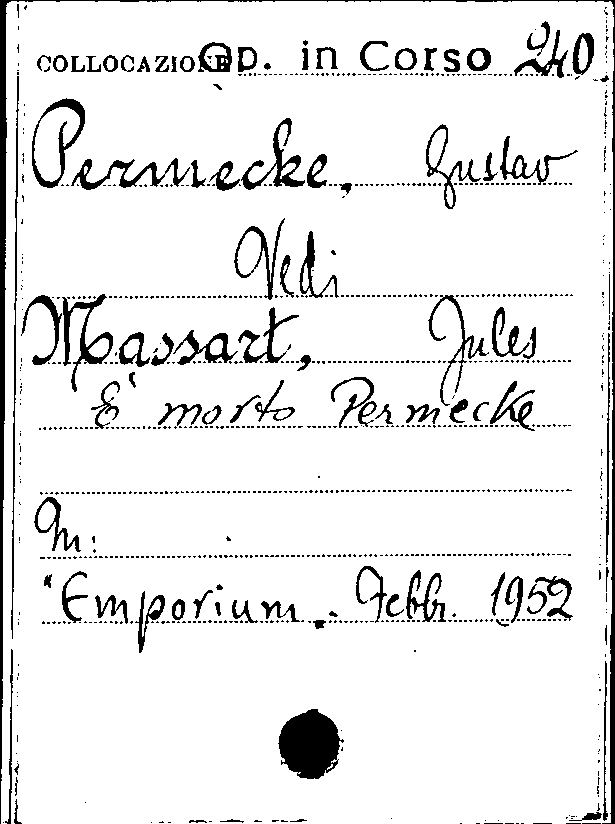 COLLOCAZIONE Op. in Corso 240
Permecke, Gustav
Vedi
Massart, Jules
E' morto Permecke
In:
"Emporium". Febbr. 1952